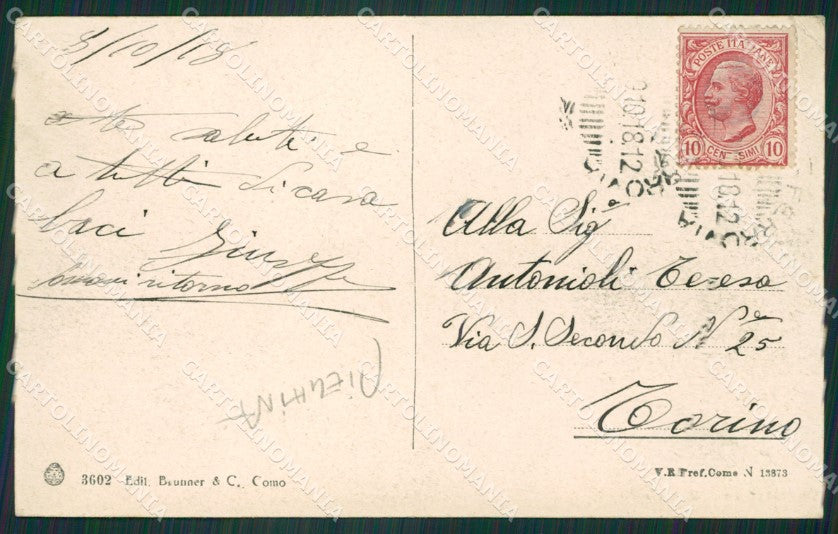 8/10/18
saluti e
a tutti di casa
baci Giuseppe
ritorno
POSTE ITALIANE
10 CENTESIMI 10
18.12
FERROVIA
Alla Sigª
Antonioli Teresa
Via S. Secondo Nº 25
Torino
3602 Edit. Brunner & C. Como
V.R Pref. Como N 13873
CARTOLINOMANIA